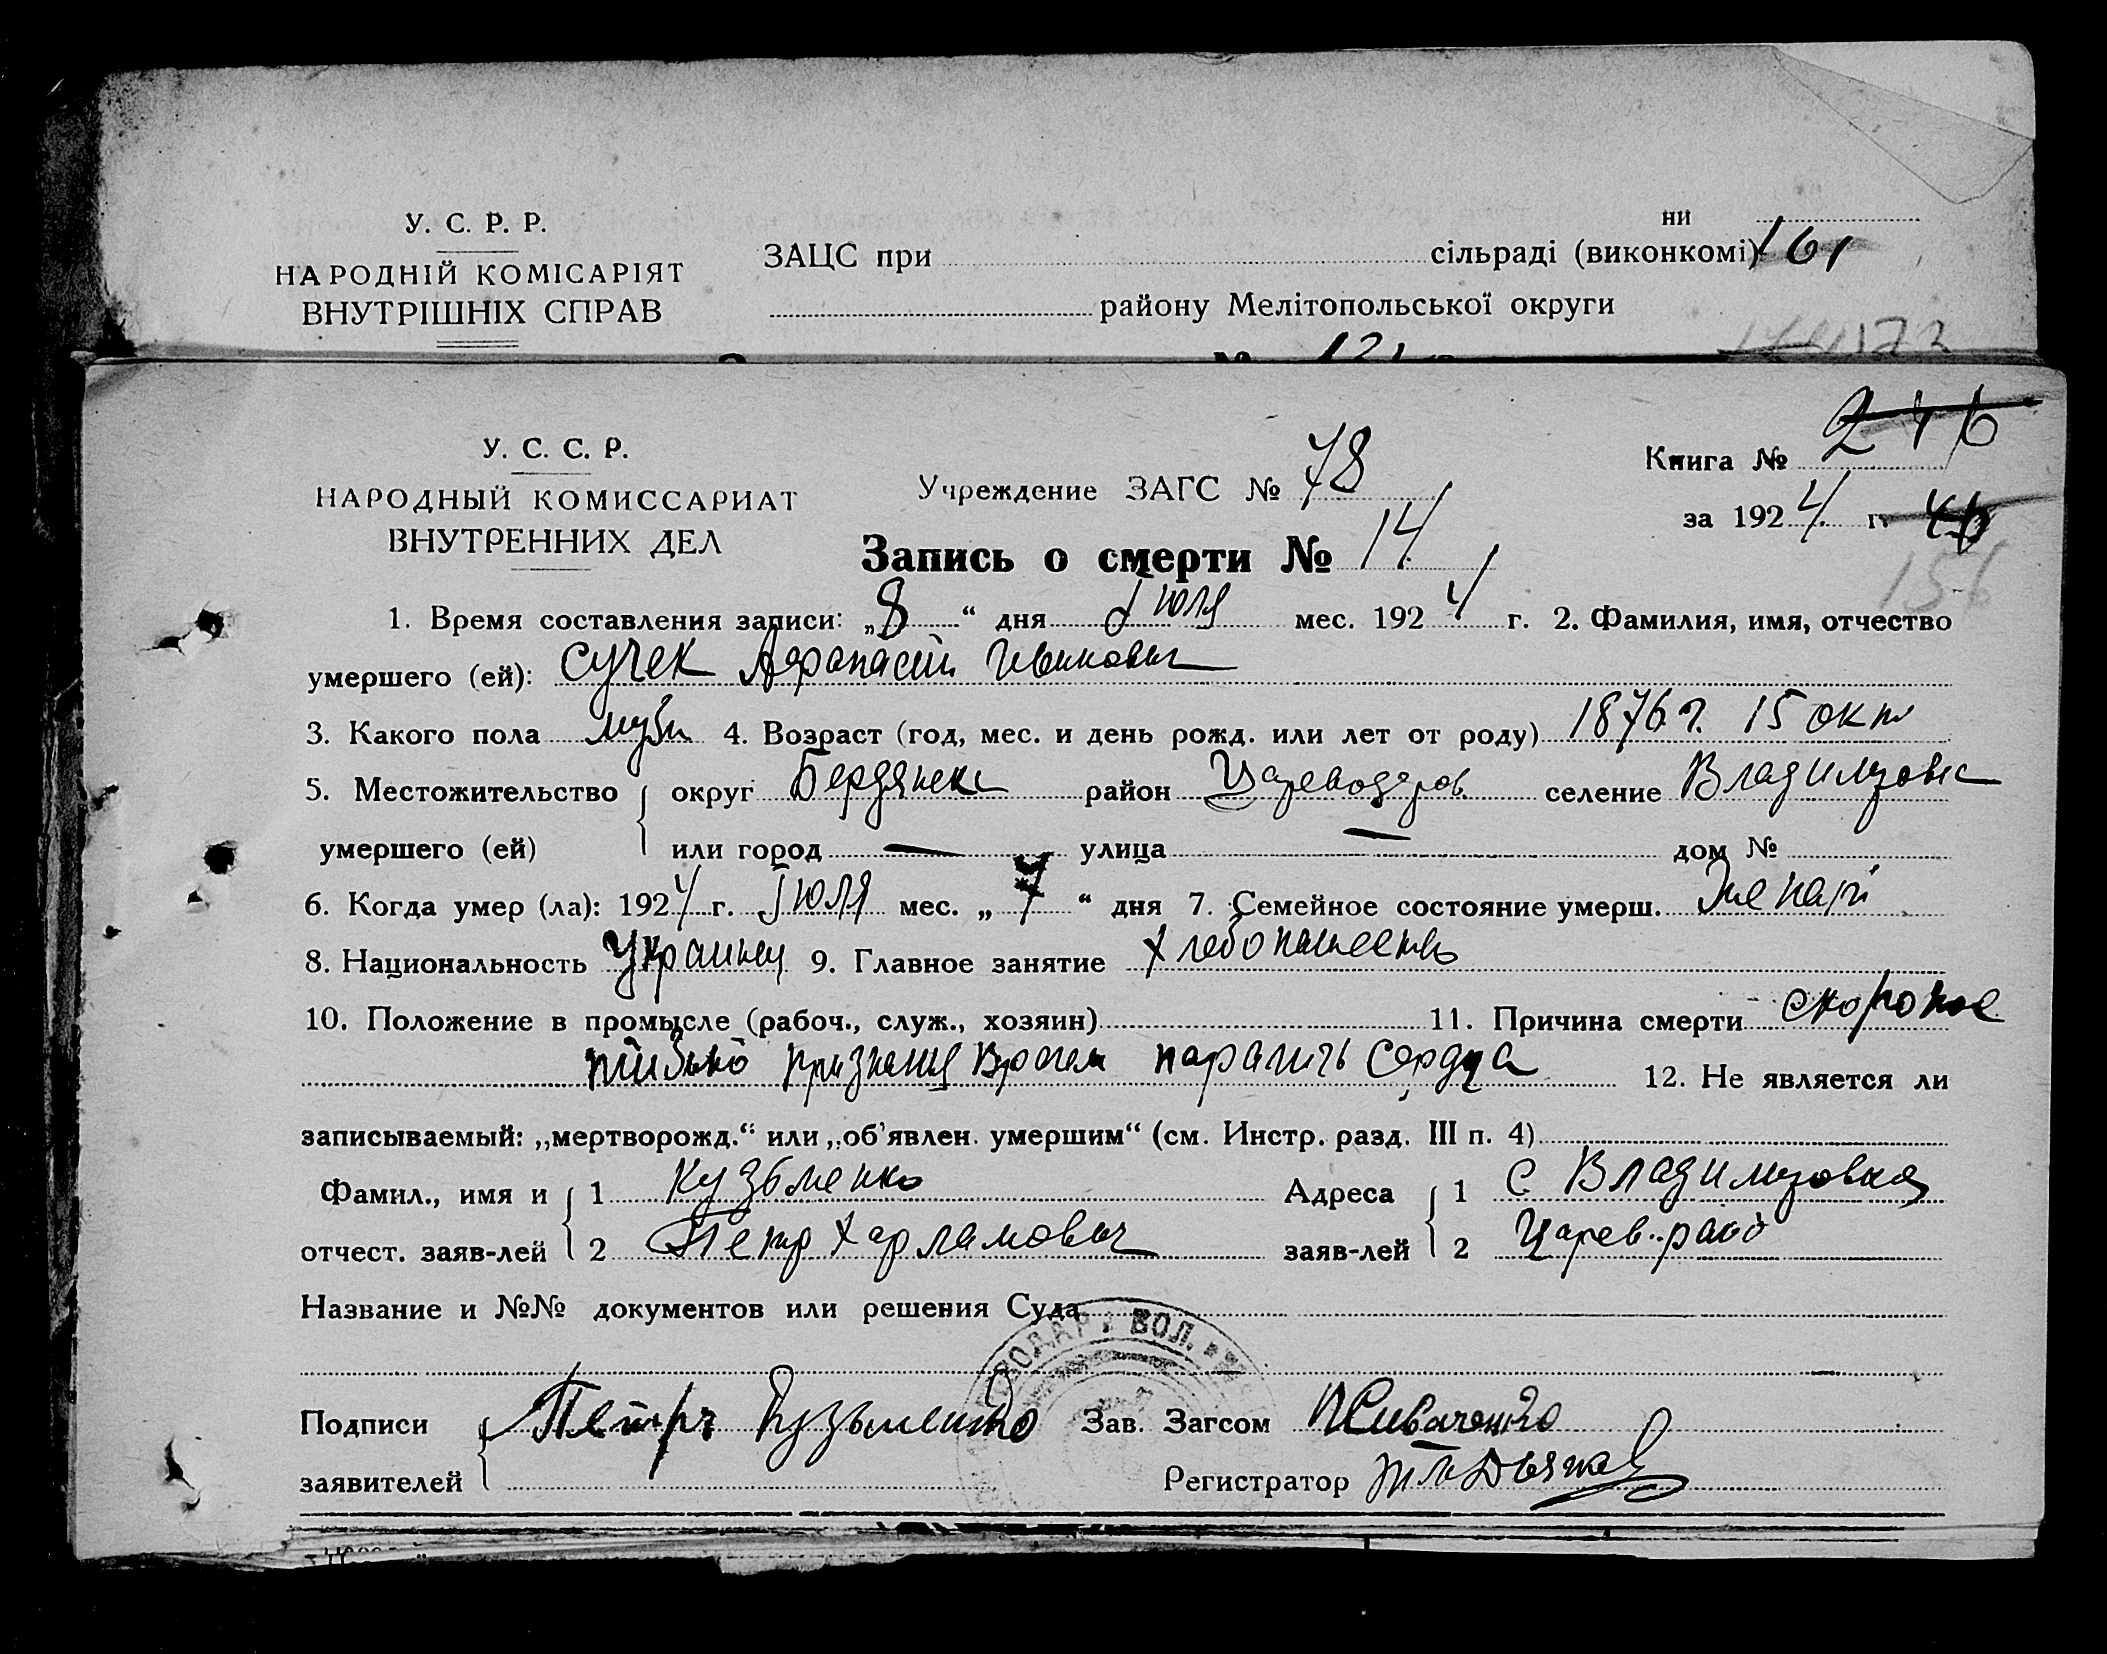 У. С. Р. Р.
НАРОДНІЙ КОМІСАРІЯТ
ВНУТРІШНІХ СПРАВ
ни
ЗАЦС при сільраді (виконкомі) 161
району Мелітопольської округи
173
У. С. С. Р.
НАРОДНЫЙ КОМИССАРИАТ
ВНУТРЕННИХ ДЕЛ
Учреждение ЗАГС № 78
Книга № 246
за 1924 г. 46
156
Запись о смерти № 14
1. Время составления записи: „8“ дня Июля мес. 1924 г. 2. Фамилия, имя, отчество
умершего (ей): Сучек Афанасий Иванович
3. Какого пола муж 4. Возраст (год, мес. и день рожд. или лет от роду) 1876 г. 15 окт
5. Местожительство округ Бердянск район Цареводаров. селение Владимровка
умершего (ей) или город — улица — дом №
6. Когда умер (ла): 1924 г. Июля мес. „7“ дня 7. Семейное состояние умерш. Женатый
8. Национальность Украинец 9. Главное занятие Хлебопашество
10. Положение в промысле (рабоч., служ., хозяин) 11. Причина смерти скоропос
тижно признания Врачем параличь Сердца 12. Не является ли
записываемый: „мертворожд.“ или „об'явлен. умершим“ (см. Инстр. разд. III п. 4)
Фамил., имя и 1 Кузьменко Адреса 1 С Владимровка
отчест. заяв-лей 2 Петр Харламович заяв-лей 2 Царев. райо
Название и №№ документов или решения Суда
ВОДАР. ВОЛ.
Подписи Петръ Кузьменко Зав. Загсом
заявителей Регистратор